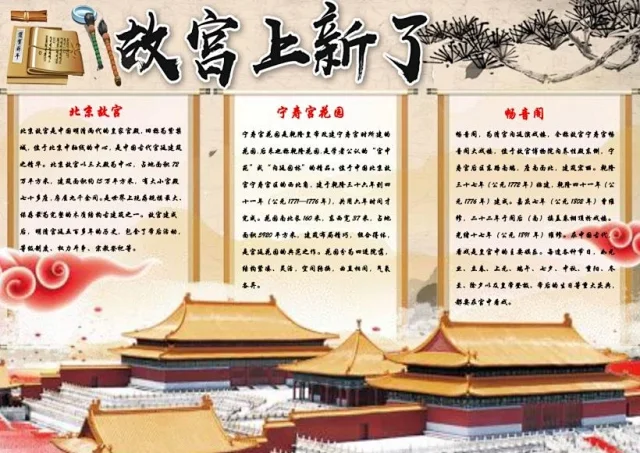 故宫上新了
北京故宫
北京故宫是中国明清两代的皇家宫殿，旧称为紫禁
城，位于北京中轴线的中心，是中国古代宫廷建筑
之精华。北京故宫以三大殿为中心，占地面积 72
万平方米，建筑面积约 15 万平方米，有大小宫殿
七十多座，房屋九千余间。是世界上现存规模最大、
保存最为完整的木质结构古建筑之一。故宫建成
后，明清宫廷五百多年的历史，包含了帝后活动、
等级制度、权力斗争、宗教祭祀等。
宁寿宫花园
宁寿宫花园是乾隆皇帝改建宁寿宫时所建的
花园，后来也称乾隆花园，是学者公认的“宫中
苑”或“内廷园林”的精品。位于中国北京故
宫宁寿宫区的西北角，建于乾隆三十六年到四
十一年（公元 1771—1776 年），共用六年时间才
完成。花园南北长 160 米，东西宽 37 米，占地面
积 5920 平方米，建筑布局精巧，组合得体，
是宫廷花园的典范之作。花园分为四进院落，
结构紧凑、灵活，空间转换，曲直相间，气氛
各异。
畅音阁
畅音阁，为清宫内廷演戏楼，全称故宫宁寿宫畅
音阁大戏楼，位于故宫博物院内养性殿东侧，宁
寿宫后区东路南端，座南面北，建筑宏丽。乾隆
三十七年（公元 1772 年）始建，乾隆四十一年（公
元 1776 年）建成。嘉庆七年（公元 1802 年）曾维
修，二十二年于阁后（南）接盖卷棚顶扮戏楼。
光绪十七年（公元 1891 年）重修。在中国古代，
看戏是皇宫中的主要娱乐。每逢各种节日，如元
旦、立春、上元、端午、七夕、中秋、重阳、冬
至、除夕以及皇帝登极、帝后的生日等重大庆典，
都要在宫中看戏。